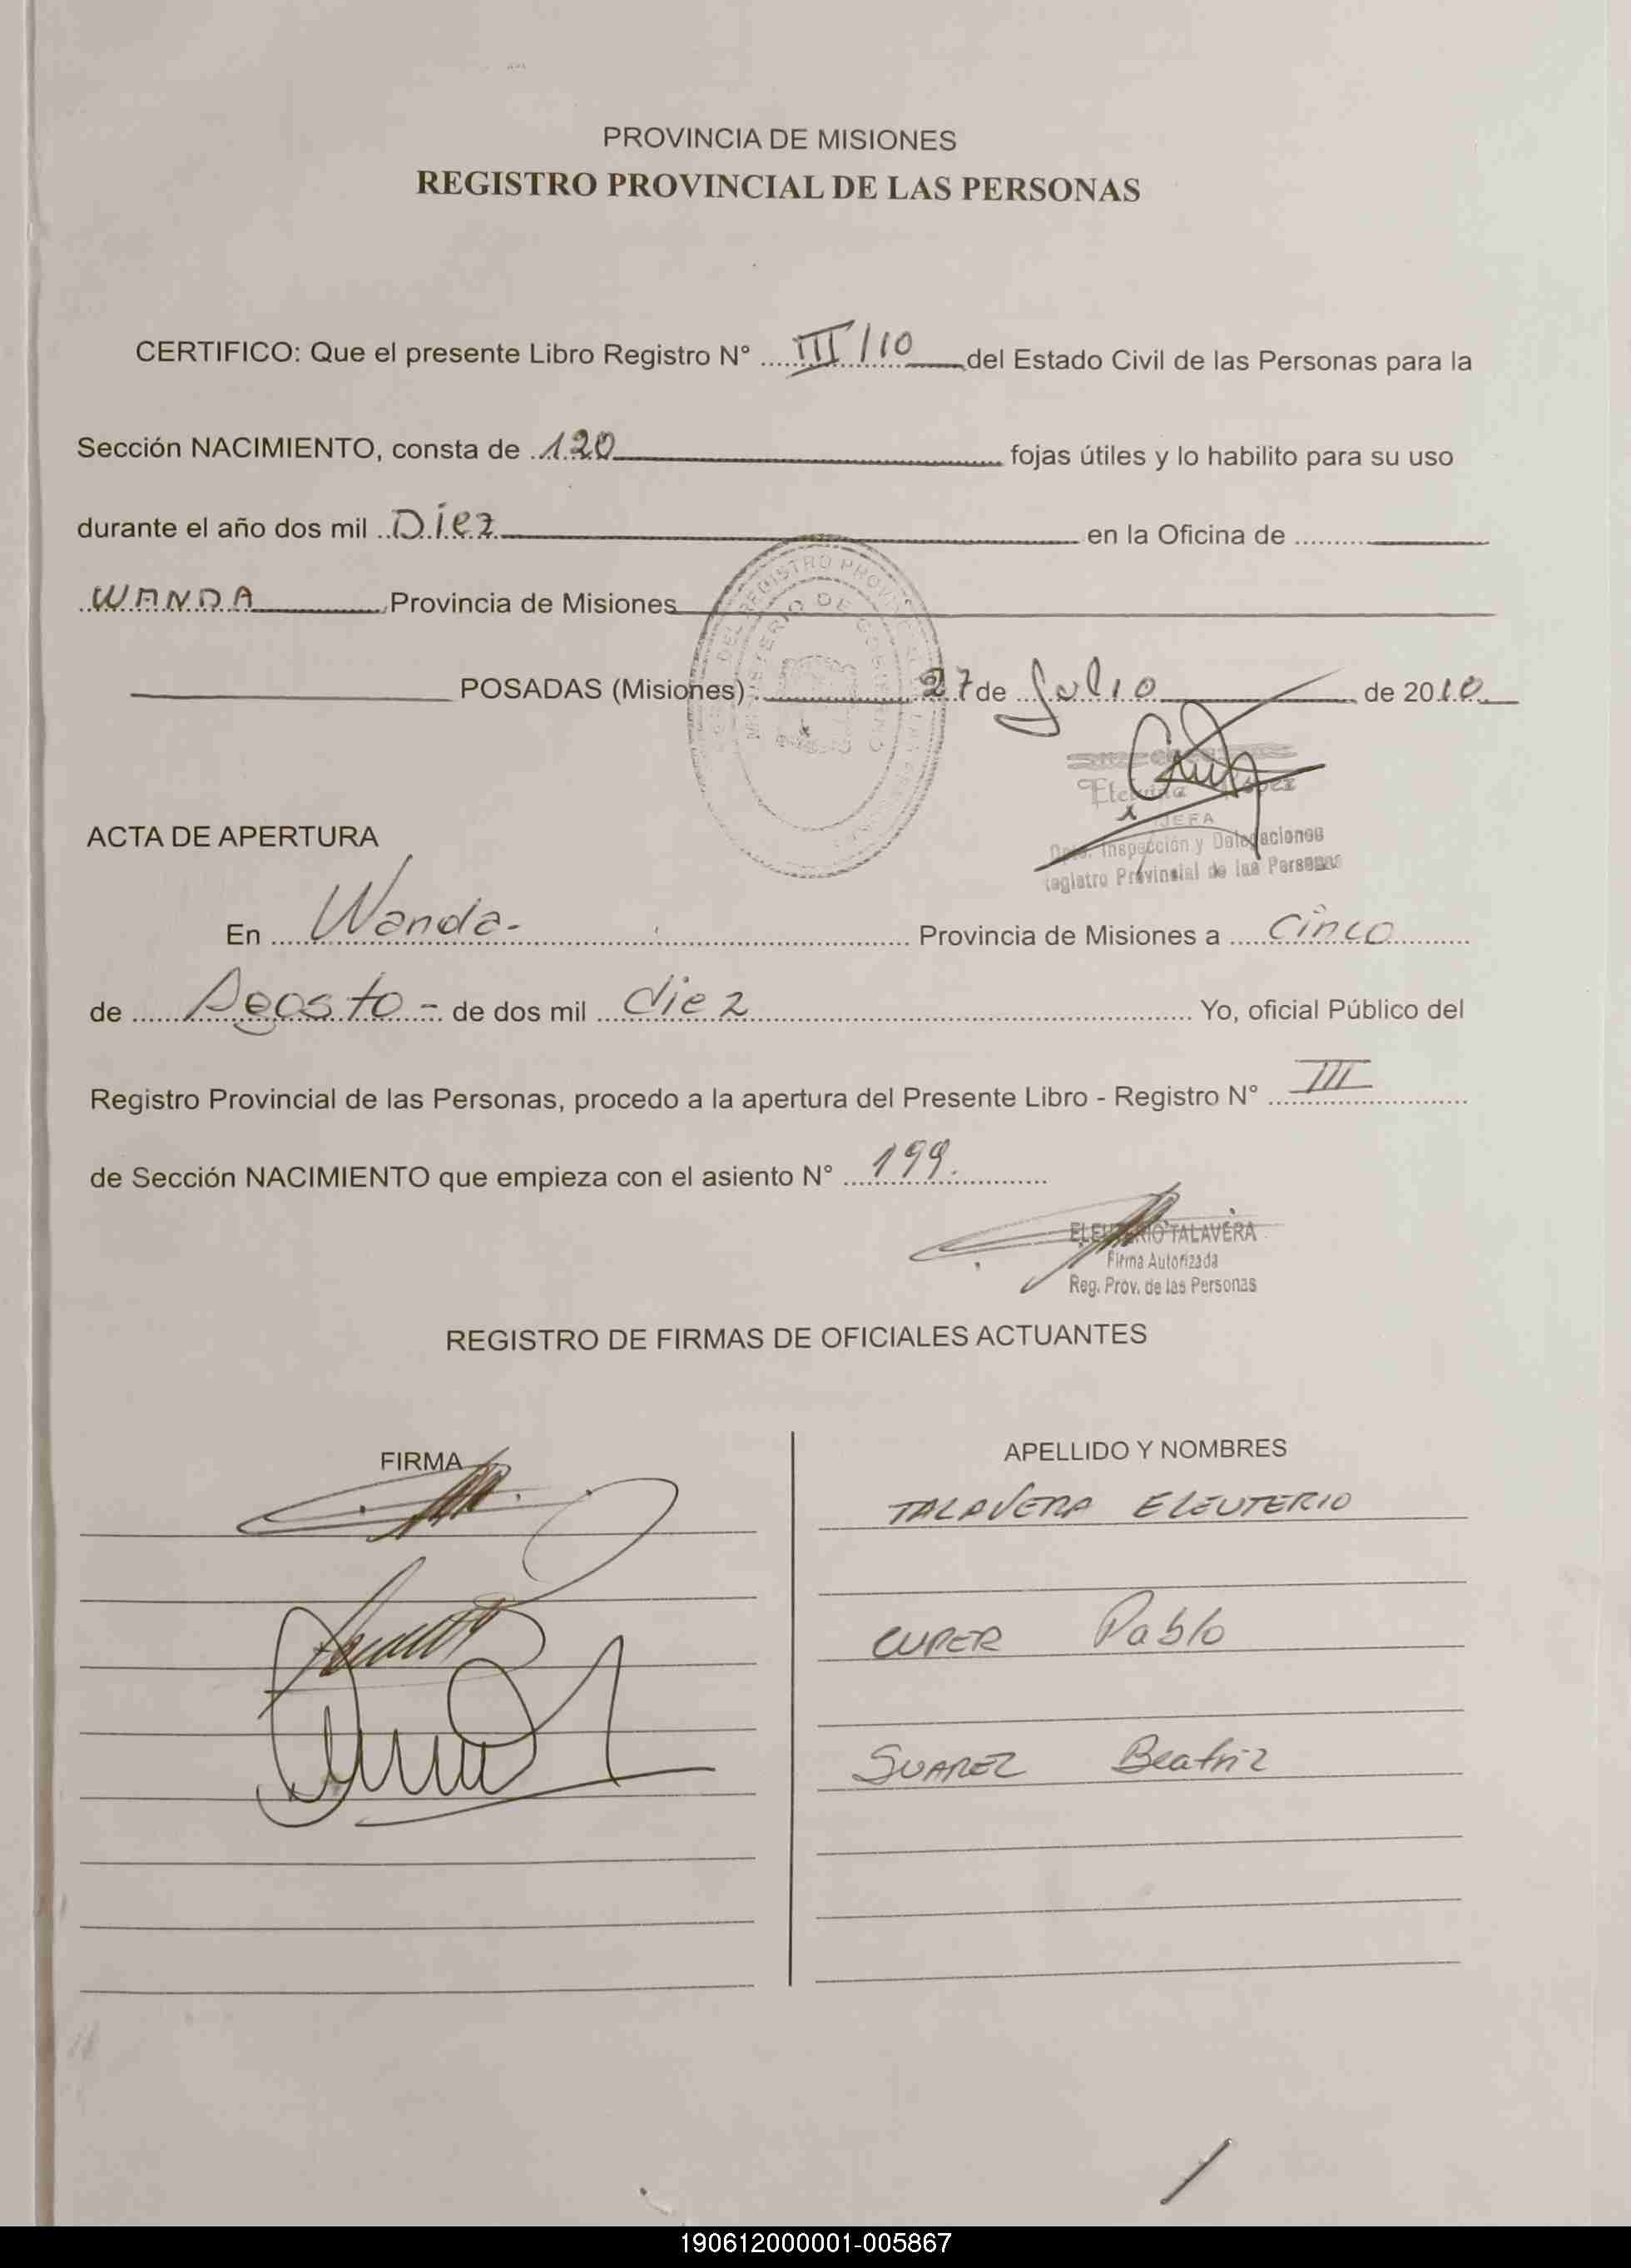 PROVINCIA DE MISIONES
REGISTRO PROVINCIAL DE LAS PERSONAS
CERTIFICO: Que el presente Libro Registro N° III/10 del Estado Civil de las Personas para la
Sección NACIMIENTO, consta de 120 fojas útiles y lo habilito para su uso
durante el año dos mil Diez en la Oficina de
WANDA Provincia de Misiones
POSADAS (Misiones) 27 de Julio de 2010
JEFA
Dpto. Inspección y Delegaciones
Registro Provincial de las Personas
ACTA DE APERTURA
En Wanda- Provincia de Misiones a Cinco
de Agosto - de dos mil diez Yo, oficial Público del
Registro Provincial de las Personas, procedo a la apertura del Presente Libro - Registro N° III
de Sección NACIMIENTO que empieza con el asiento N° 199.
ELEUTERIO TALAVERA
Firma Autorizada
Reg. Prov. de las Personas
REGISTRO DE FIRMAS DE OFICIALES ACTUANTES
FIRMA
APELLIDO Y NOMBRES
TALAVERA ELEUTERIO
CUPER Pablo
SUAREZ Beatriz
190612000001-005867